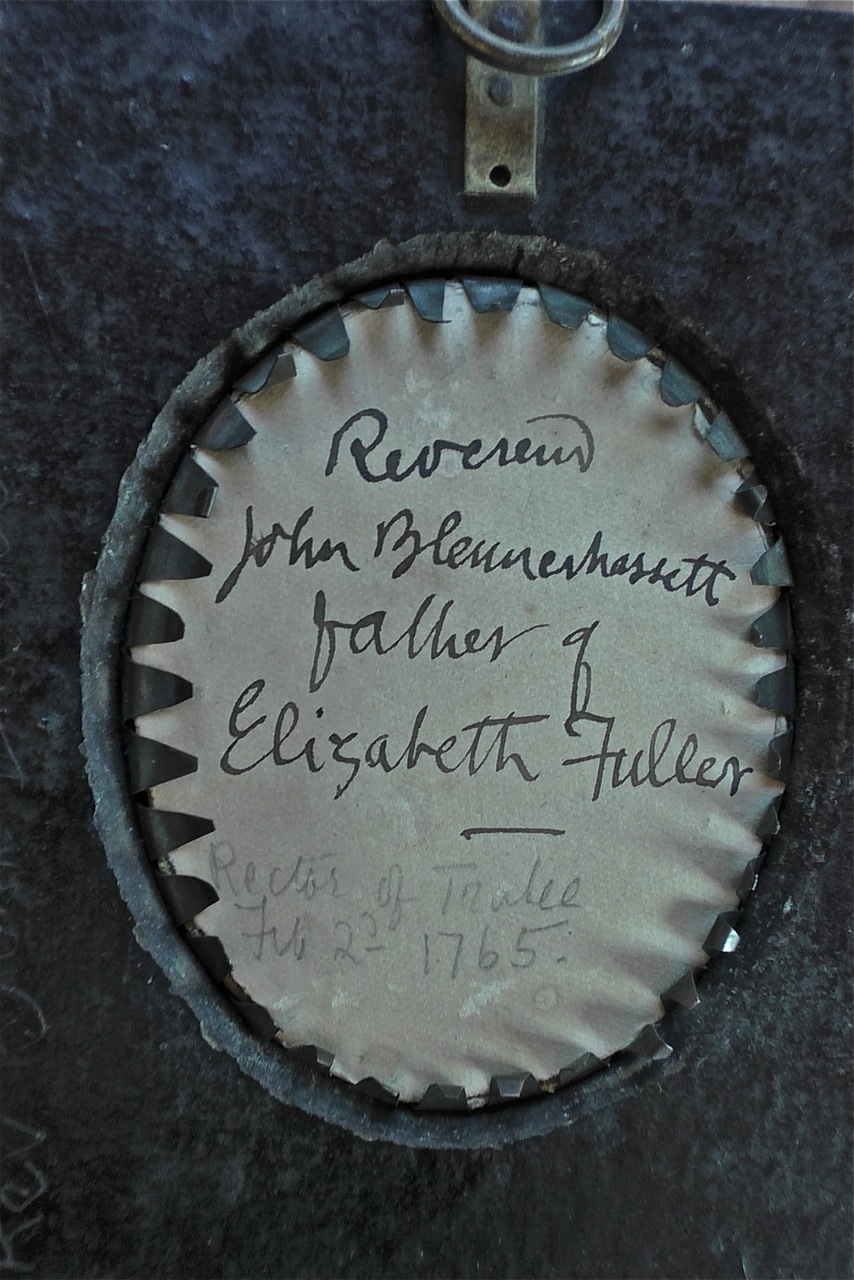 Reverend
John Blennerhassett
father of
Elizabeth Fuller
Rector of Tralee
Feb 2d 1765.
Rev